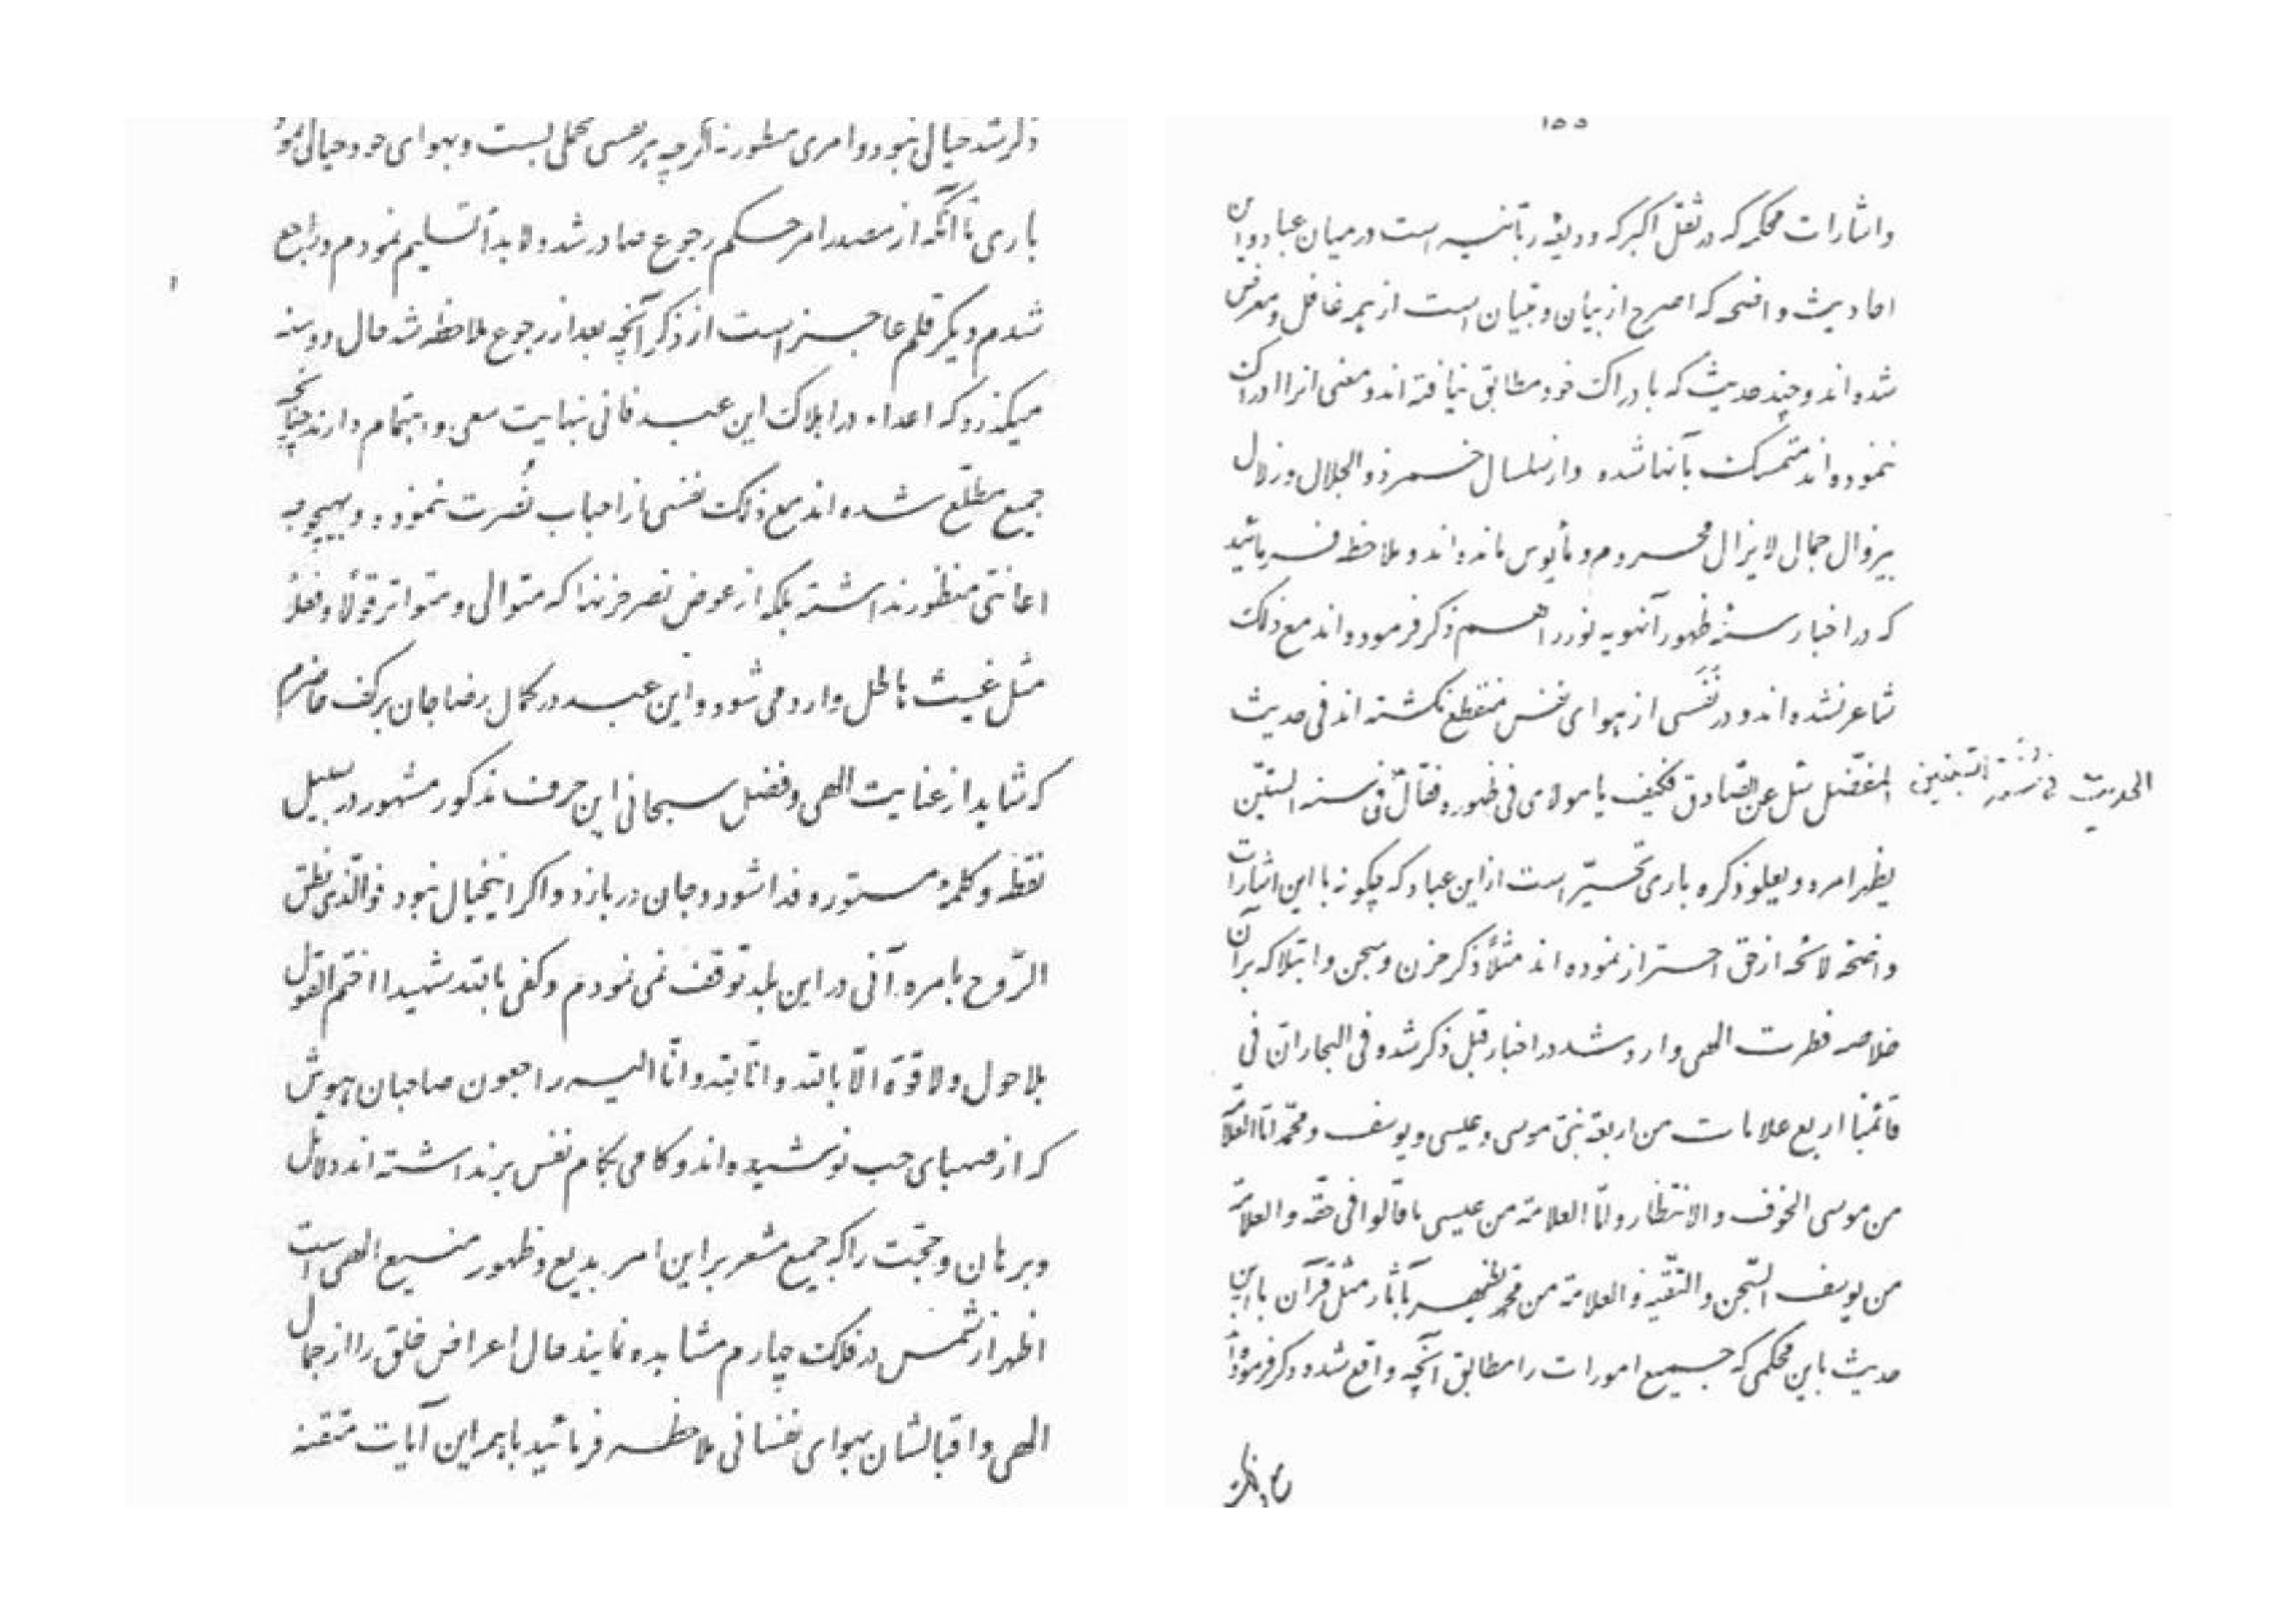 ذکر شد خیالی نبود و امری منظور نه اگرچه هر نفسی محملی بست و بهوای خود خیالی نمود
باری تا آنکه از مصدر امر حکم رجوع صادر شد و لابداً تسلیم نمودم و راجع
شدم دیگر قلم عاجز است از ذکر آنچه بعد از رجوع ملاحظه شد حال دو سنه
میگذرد که اعداء در اهلاک این عبد فانی نهایت سعی و اهتمام دارند چنانچه
جمیع مطّلع شده اند مع ذلک نفسی از احباب نُصرت ننموده و بهیچوجه
اعانتی منظور نداشته بلکه از عوض نصر حزنها که متوالی و متواتر قولاً و فعلاً
مثل غیث هاطل وارد می شود و این عبد در کمال رضا جان بر کف حاضرم
که شاید از عنایت الهی و فضل سبحانی این حرف مذکور مشهور در سبیل
نقطه و کلمهٔ مستوره فدا شود و جان در بازد و اگر این خیال نبود فو الّذی نطق
الرّوح بامره آنی در این بلد توقف نمی نمودم و کفی بالله شهیدا اختم القول
بلا حول و لا قوّة الّا بالله و انّا لله و انّا الیه راجعون صاحبان هوش
که از صهبای حب نوشیده اند و گامی بکام نفس بر نداشته اند دلائل
و برهان و حجّت را که جمیع مشعر بر این امر بدیع و ظهور منیع الهی است
اظهر از شمس در فلک چهارم مشاهده نمایند حال اعراض خلق را از جمال
الهی و اقبالشان بهوای نفسانی ملاحظه فرمائید با همه این آیات متقنه
۱۵۵
و اشارات محکمه که در ثقل اکبر که ودیعهٔ ربّانیّه است در میان عباد و این
احادیث واضحه که اصرح از بیان و تبیان است از همه غافل و معرض
شده اند و چند حدیث که بادراک خود مطابق نیافته اند و معنی انرا ادراک
ننموده اند متمسک بآنها شده و از سلسال خمر ذو الجلال و زلال
بیزوال جمال لا یزال محروم و مأیوس مانده اند و ملاحظه فرمائید
که در اخبار سنهٔ ظهور آنهویه نور را هم ذکر فرموده اند مع ذلک
شاعر نشده اند و در نَفَسی از هوای نفس منقطع نگشته اند فی حدیث
المفضّل سئل عن الصّادق فکیف یا مولای فی ظهوره فقال فی سنه الستّین
الحدیث فی سنة الستین
یظهر امره و یعلو ذکره باری تحیّر است از این عباد که چگونه با این اشارات
واضحه لائحه از حق احتراز نموده اند مثلاً ذکر حزن و سجن و ابتلا که بر آن
خلاصه فطرت الهی وارد شد در اخبار قبل ذکر شده فی البحار انّ فی
قائمنا اربع علامات من اربعة نبیّ موسی و عیسی و یوسف و محمّد امّا العلامة
من موسی الخوف و الانتظار و امّا العلامة من عیسی ما قالوا فی حقّه و العلامة
من یوسف السّجن و التّقیه و العلامة من محمّد یظهر بآثار مثل قرآن با این
حدیث باین محکمی که جمیع امورات را مطابق آنچه واقع شده ذکر فرموده اند
مع ذلک